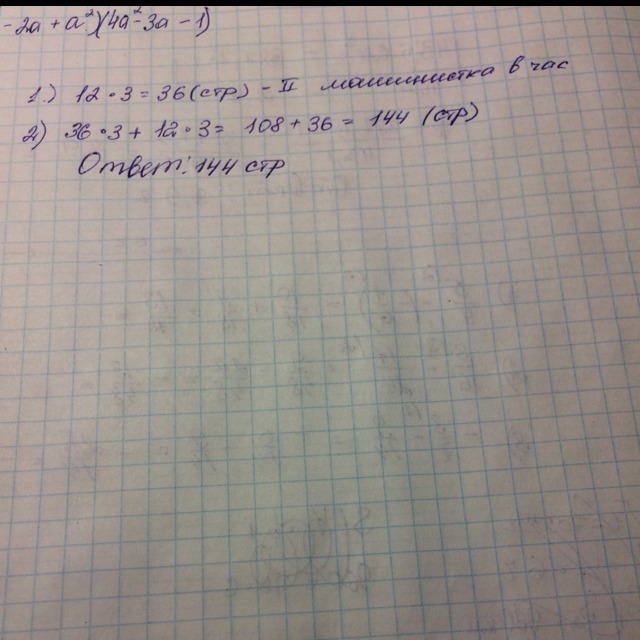 - 2a + a²)(4a² - 3a - 1)
1.) 12 · 3 = 36 (стр) - II машинистка в час
2) 36 · 3 + 12 · 3 = 108 + 36 = 144 (стр)
Ответ: 144 стр